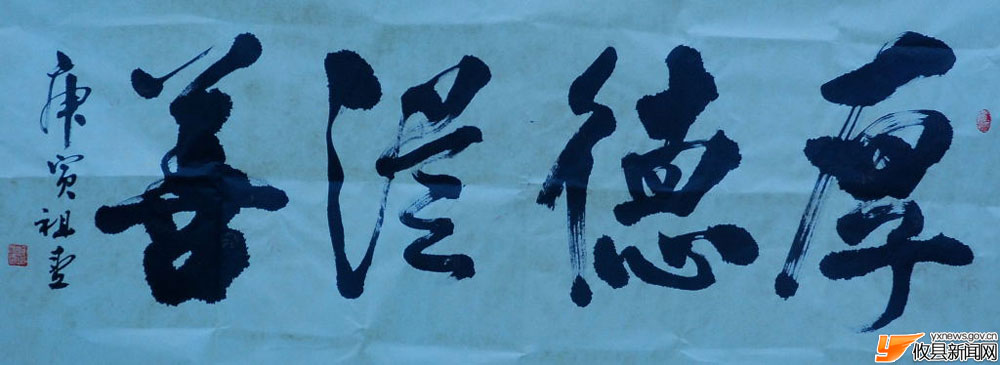 厚德從善
庚寅祖
yxnews.gov.cn
攸县新闻网